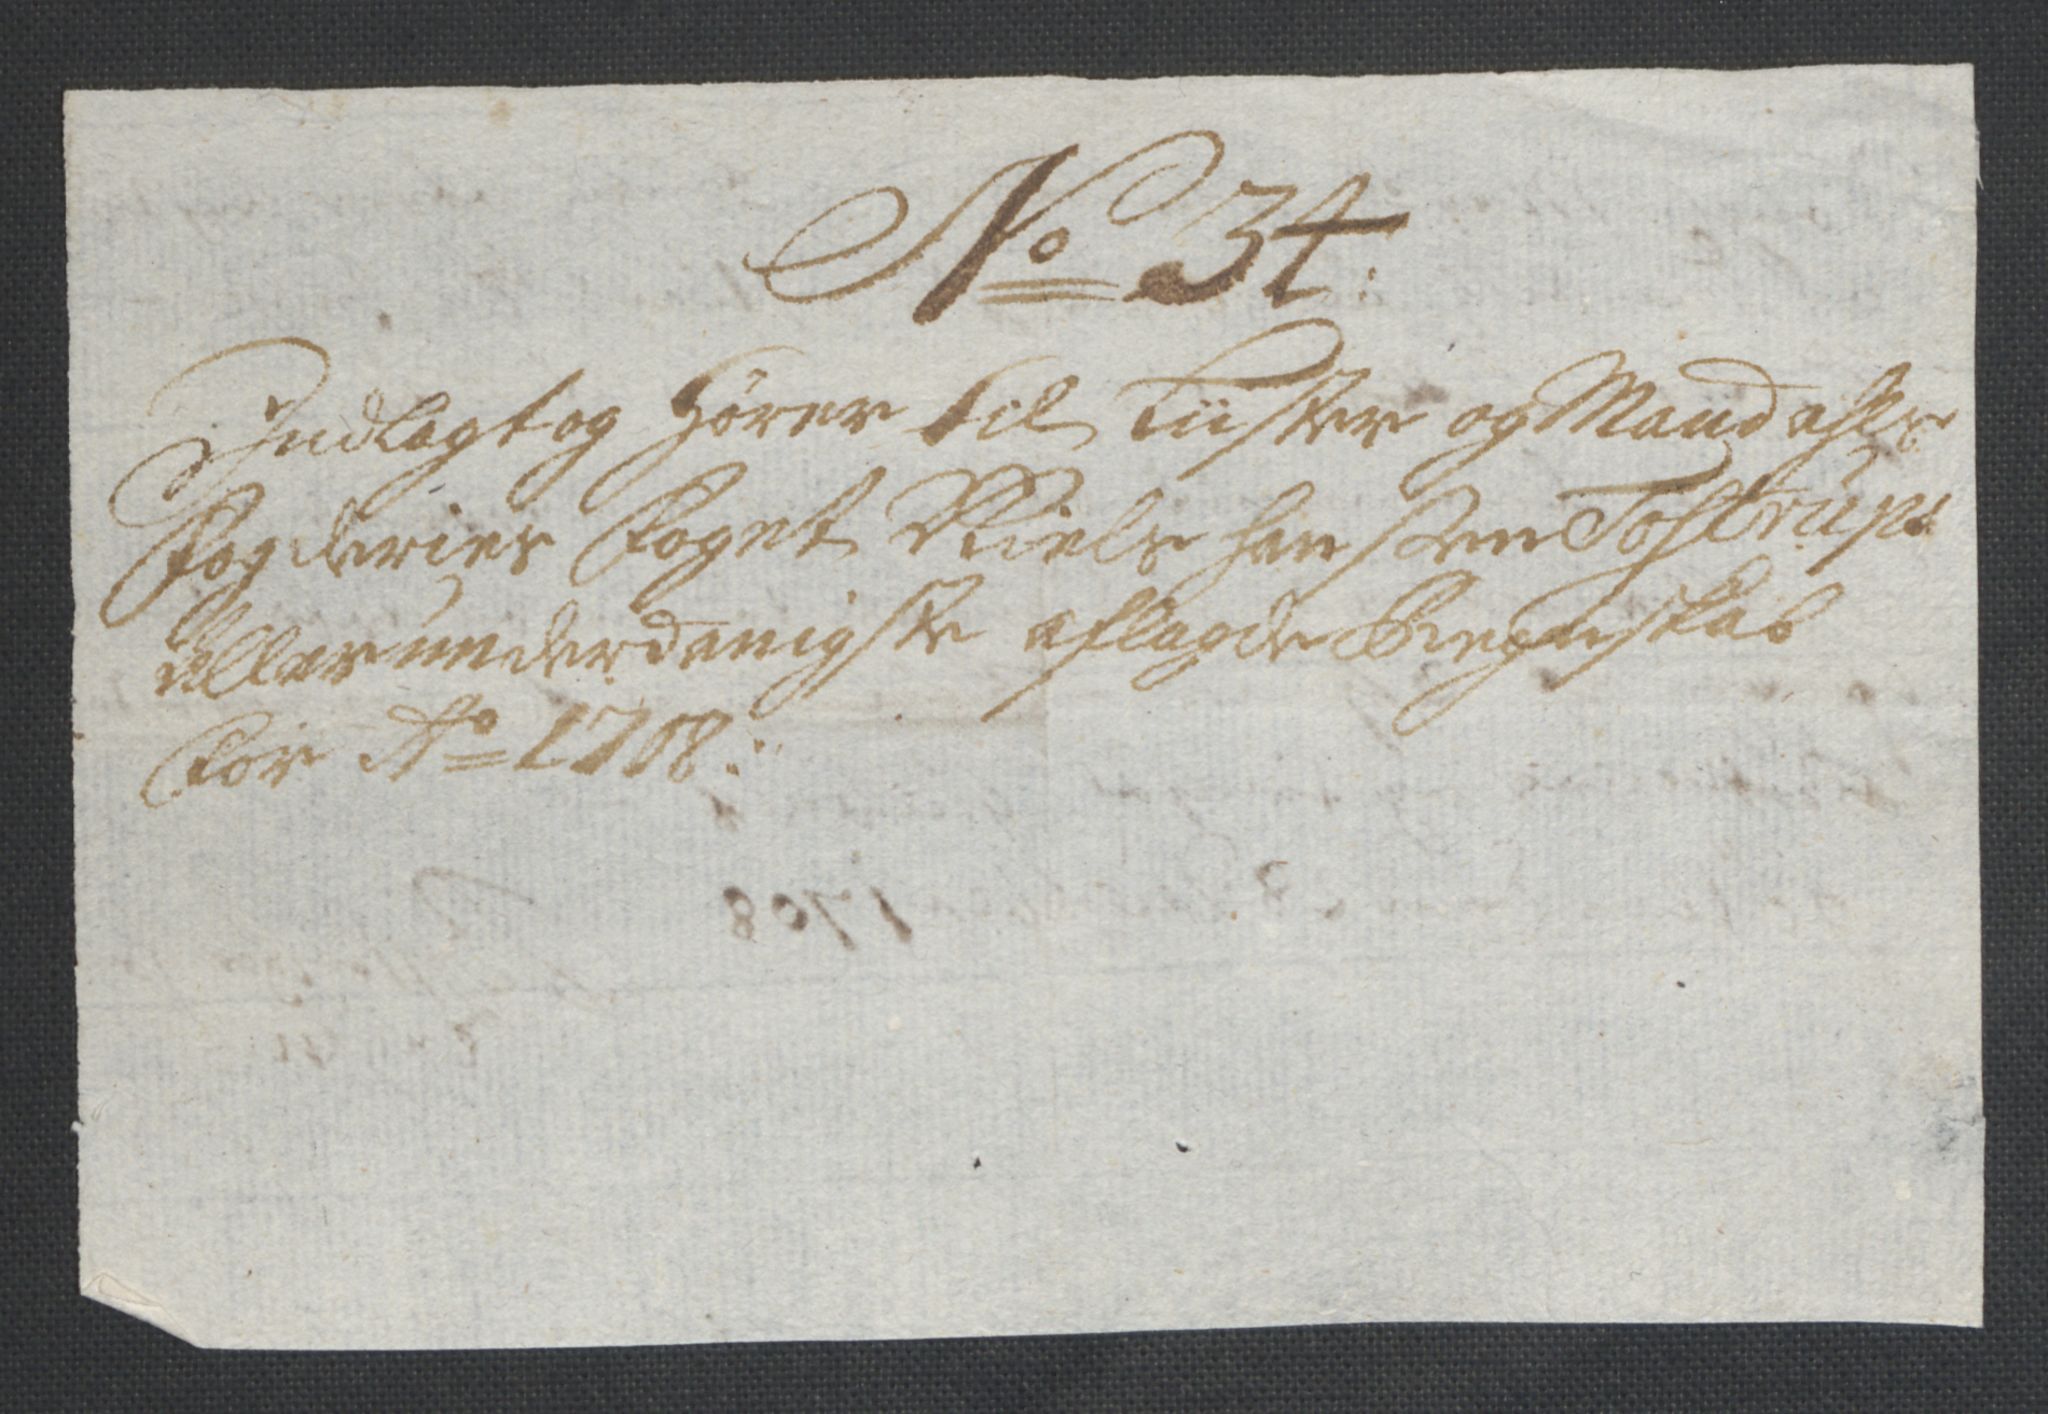 No 34.
Indlagt og hører til Lister og Mandahls
fogderies foget Niels Hansen Tostrups
allerunderdanigste aflagde Regnskab
for Ao 1708.